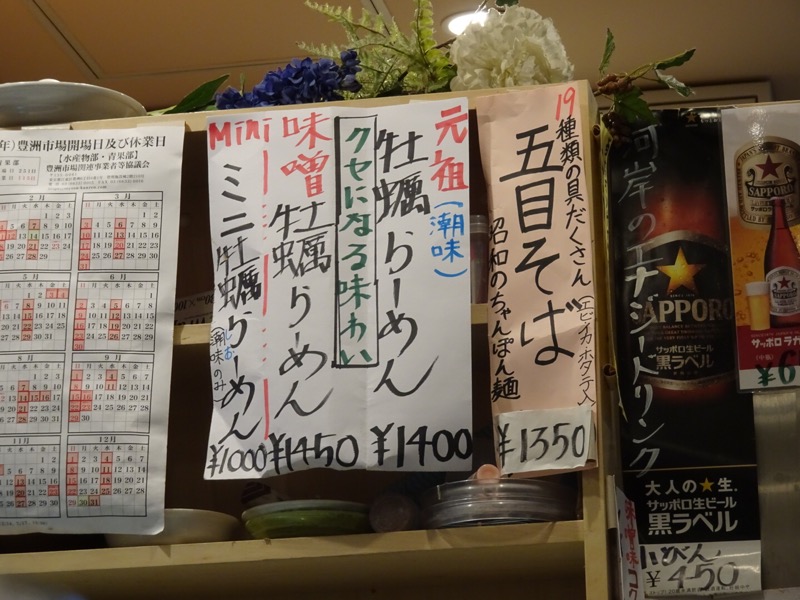 年)豊洲市場開場日及び休業日
【水産物部・青果部】
豊洲市場関連事業者等協議会
2月
3月
5月
6月
8月
9月
11月
12月
元祖(潮味)
牡蠣らーめん
¥1400
クセになる味わい
味噌
牡蠣らーめん
¥1450
Mini
ミニ牡蠣らーめん
¥1000
19種類の具だくさん
五目そば
(エビ・イカ・ホタテ入)
昭和のちゃんぽん麺
¥1350
河岸のエナジードリンク
SAPPORO
サッポロ生ビール
黒ラベル
大人の★生。
サッポロ生ビール
黒ラベル
¥450
SAPPORO
サッポロラガ
(中瓶)
¥6